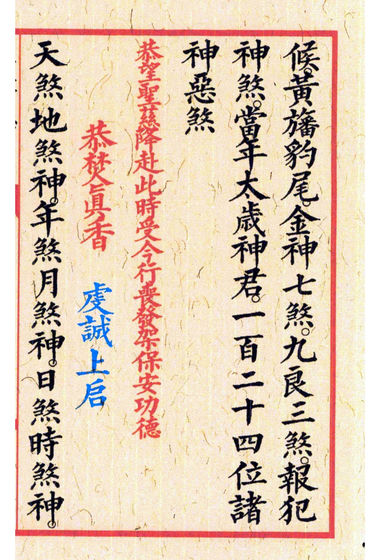 候。黃旛豹尾。金神七煞。九良三煞。報犯
神煞。當年太歲神君。一百二十四位諸
神惡煞
恭望聖慈降赴此時受今行喪發架保安功德
恭焚眞香
虔誠上启
天煞地煞神。年煞月煞神。日煞時煞神。